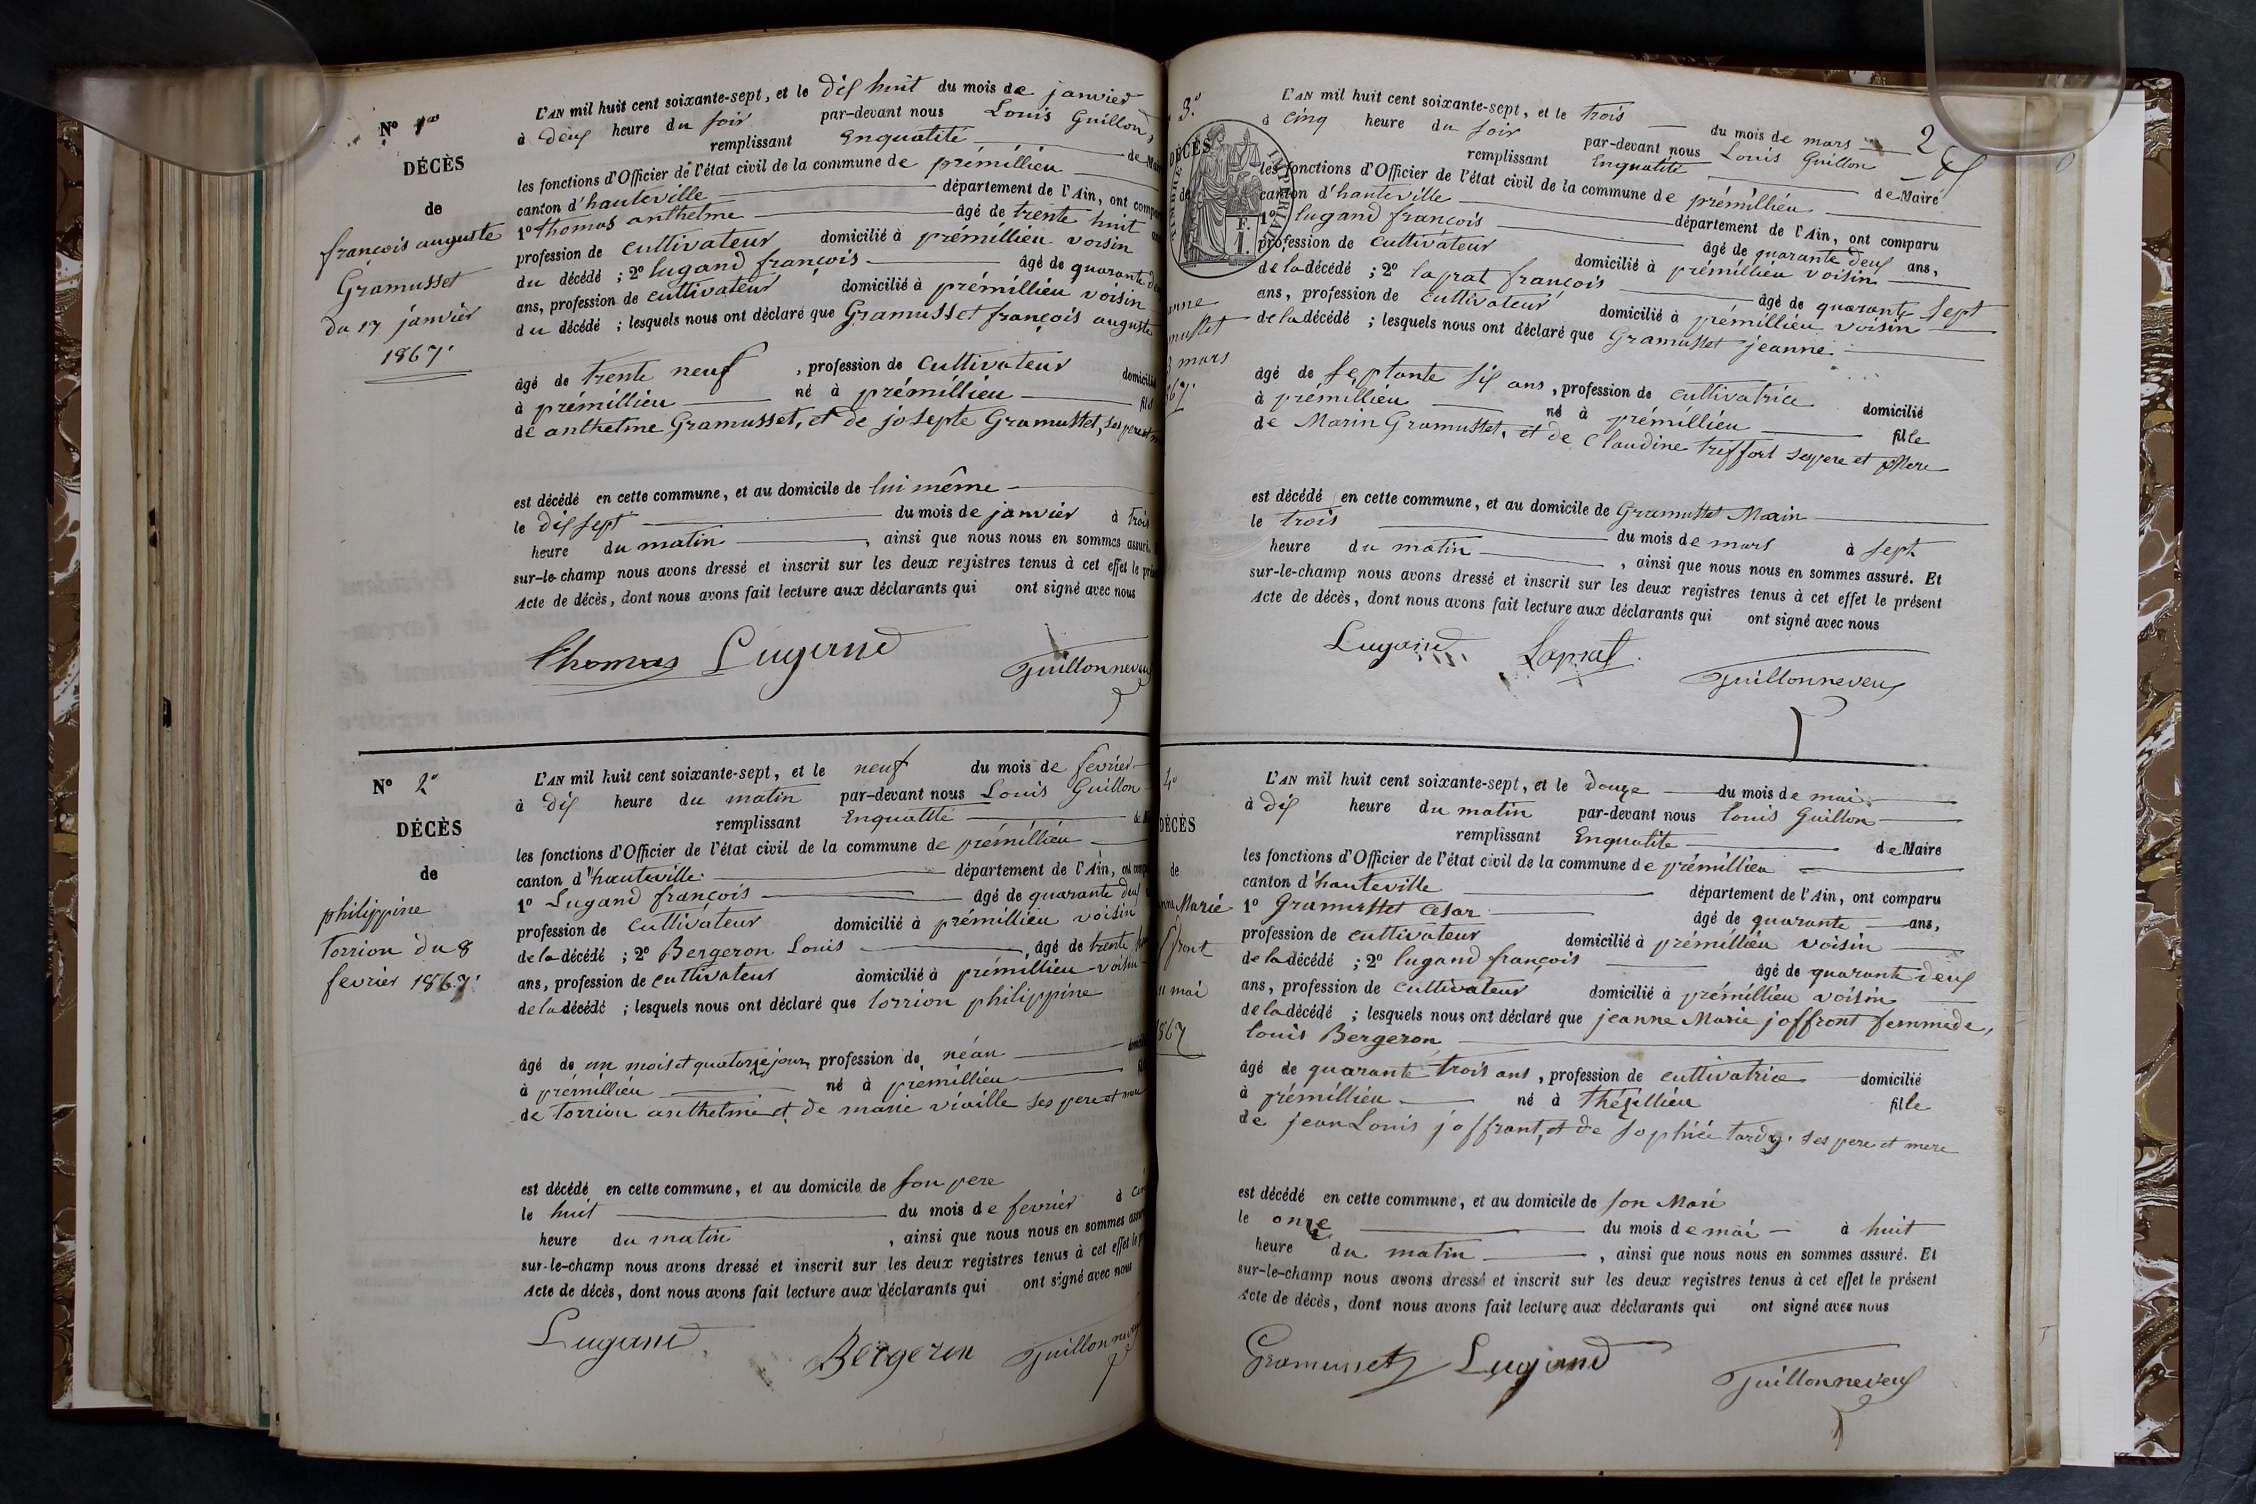 Nº 1er
DÉCÈS
de
françois auguste
Gramusset
du 17 janvier
1867.
L'AN mil huit cent soixante-sept, et le dix huit du mois de janvier
à deux heure du soir par-devant nous Louis Guillon
remplissant Enqualité de Mair
les fonctions d'Officier de l'état civil de la commune de prémillieu
canton d'hauteville département de l'Ain, ont compa
1º thomas anthelme âgé de trente huit
profession de cultivateur domicilié à prémillieu voisin
du décédé ; 2º lugand françois âgé de quarante
ans, profession de cultivateur domicilié à prémillieu voisin
du décédé ; lesquels nous ont déclaré que Gramusset françois auguste
âgé de trente neuf , profession de cultivateur domicilié
à prémillieu né à prémillieu fils
de anthelme Gramusset, et de josepte Gramusset, ses pere et
est décédé en cette commune, et au domicile de lui même
le dix sept du mois de janvier à trois
heure du matin , ainsi que nous nous en sommes assuré.
sur-le-champ nous avons dressé et inscrit sur les deux registres tenus à cet effet le
Acte de décès, dont nous avons fait lecture aux déclarants qui ont signé avec nous
Thomas Lugand Guillonneveux
Nº 2º
DÉCÈS
de
philippine
Torrion du 8
fevrier 1867.
L'AN mil huit cent soixante-sept, et le neuf du mois de fevrier
à dix heure du matin par-devant nous Louis Guillon
remplissant Enqualité
les fonctions d'Officier de l'état civil de la commune de prémillieu
canton d'hauteville département de l'Ain, ont comp
1º Lugand françois âgé de quarante deux
profession de cultivateur domicilié à prémillieu voisin
de la décédé ; 2º Bergeron Louis , âgé de trente
ans, profession de cultivateur domicilié à prémillieu voisin
de la décédé ; lesquels nous ont déclaré que torrion philippine
âgé de un mois et quatorze jours profession de néan
à prémillieu né à prémillieu
de torrion anthelme et de marie vieille ses pere et mere
est décédé en cette commune, et au domicile de son pere
le huit du mois de fevrier à
heure du matin , ainsi que nous nous en sommes
sur-le-champ nous avons dressé et inscrit sur les deux registres tenus à cet effet le
Acte de décès, dont nous avons fait lecture aux déclarants qui ont signé avec nous
Lugand Bergeron Guillonneveux
3.º
DÉCÈS
de
anne
musset
3 mars
67.
TIMBRE IMPÉRIAL
F. 1
2
L'AN mil huit cent soixante-sept, et le trois du mois de mars
à cinq heure du soir par-devant nous Louis Guillon
remplissant Enqualité de Maire
les fonctions d'Officier de l'état civil de la commune de prémillieu
canton d'hauteville département de l'Ain, ont comparu
1º lugand françois âgé de quarante deux ans,
profession de cultivateur domicilié à prémillieu voisin
de la décédé ; 2º laprat françois âgé de quarante sept
ans, profession de cultivateur domicilié à prémillieu voisin
de la décédé ; lesquels nous ont déclaré que Gramusset jeanne
âgé de septante six ans , profession de cultivatrice domicilié
à prémillieu né à prémillieu fille
de Marin Gramusset, et de Claudine treffort ses pere et Mere
est décédé en cette commune, et au domicile de Gramusset Marin
le trois du mois de mars à sept
heure du matin , ainsi que nous nous en sommes assuré. Et
sur-le-champ nous avons dressé et inscrit sur les deux registres tenus à cet effet le présent
Acte de décès, dont nous avons fait lecture aux déclarants qui ont signé avec nous
Lugand Laprat Guillonneveux
4º
DÉCÈS
de
Marie
ffront
mai
1867
L'AN mil huit cent soixante-sept, et le douze du mois de mai
à dix heure du matin par-devant nous louis Guillon
remplissant Enqualité de Maire
les fonctions d'Officier de l'état civil de la commune de prémillieu
canton d'hauteville département de l'Ain, ont comparu
1º Gramusset César âgé de quarante ans,
profession de cultivateur domicilié à prémillieu voisin
de la décédé ; 2º lugand françois âgé de quarante deux
ans, profession de cultivateur domicilié à prémillieu voisin
de la décédé ; lesquels nous ont déclaré que jeanne Marie joffront femme de
louis Bergeron
âgé de quarante trois ans , profession de cultivatrice domicilié
à prémillieu né à thézillieu fille
de jean Louis joffrant, et de sophie tardy. ses pere et mere
est décédé en cette commune, et au domicile de son Mari
le onze du mois de mai à huit
heure du matin , ainsi que nous nous en sommes assuré. Et
sur-le-champ nous avons dressé et inscrit sur les deux registres tenus à cet effet le présent
Acte de décès, dont nous avons fait lecture aux déclarants qui ont signé avec nous
Gramusset Lugand Guillonneveux